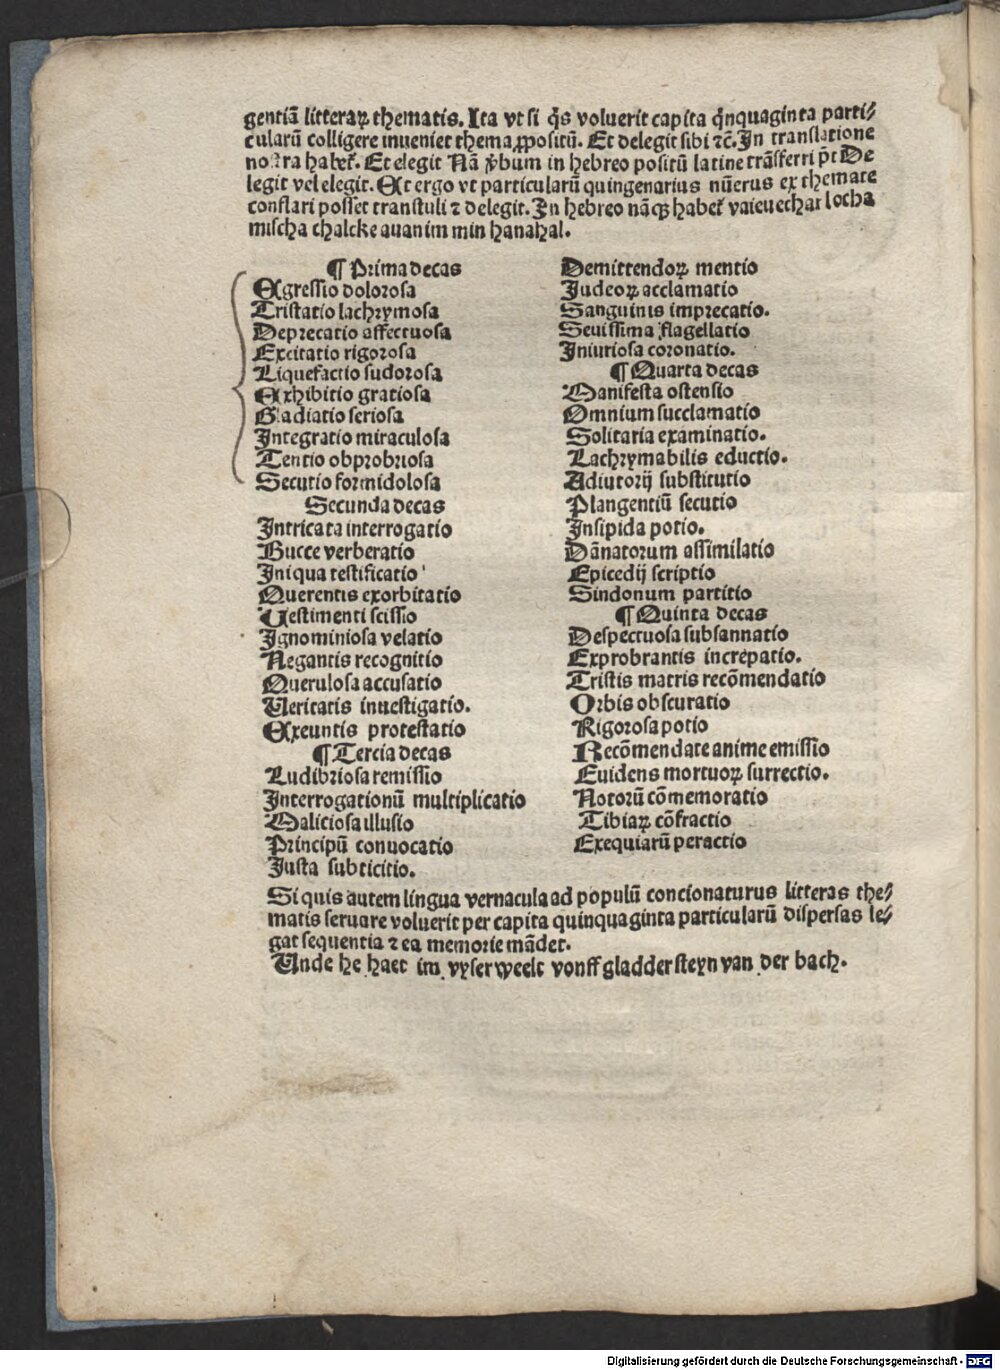 gentiā litteraꝝ thematis. Ita vt si q̇s voluerit capita q̇nquaginta parti⸗
cularū colligere inueniet thema ꝓpositū. Et delegit sibi ⁊c̄. In translatione
nostra habet̄. Et elegit Nā v̄bum in hebreo positū latine trāsferri pōt De
legit vel elegit. Et ergo vt particularū quingenarius nūerus ex themate
conflari posset transtuli ⁊ delegit. In hebreo nāqꝫ habet̄ vaieuechar locha
mischa chalcke auanim min hanahal.
¶ Prima decas
Egressio dolorosa
Tristatio lachrymosa
Deprecatio affectuosa
Excitatio rigorosa
Liquefactio sudorosa
Exhibitio gratiosa
Gladiatio seriosa
Integratio miraculosa
Tentio obprobriosa
Secutio formidolosa
Secunda decas
Intricata interrogatio
Bucce verberatio
Iniqua testificatio
Querentis exorbitatio
Vestimenti scissio
Ignominiosa velatio
Negantis recognitio
Querulosa accusatio
Veritatis inuestigatio.
Exeuntis protestatio
¶ Tercia decas
Ludibriosa remissio
Interrogationū multiplicatio
Maliciosa illusio
Principū conuocatio
Justa subticitio.
Demittendoꝝ mentio
Judeoꝝ acclamatio
Sanguinis imprecatio.
Seuissima flagellatio
Iniuriosa coronatio.
¶ Quarta decas
Manifesta ostensio
Omnium succlamatio
Solitaria examinatio.
Lachrymabilis eductio.
Adiutorij substitutio
Plangentiū secutio
Insipida potio.
Dānatorum assimilatio
Epicedij scriptio
Sindonum partitio
¶ Quinta decas
Despectuosa subsannatio
Exprobrantis increpatio.
Tristis matris recōmendatio
Orbis obscuratio
Rigorosa potio
Recōmendate anime emissio
Euidens mortuoꝝ surrectio.
Notorū cōmemoratio
Tibiaꝝ cōfractio
Exequiarū peractio
Si quis autem lingua vernacula ad populū concionaturus litteras the⸗
matis seruare voluerit per capita quinquaginta particularū dispersas le⸗
gat sequentia ⁊ ea memorie mādet.
Unde he haet im vyserweelt vonff gladder steyn van der bach.
Digitalisierung gefördert durch die Deutsche Forschungsgemeinschaft - DFG